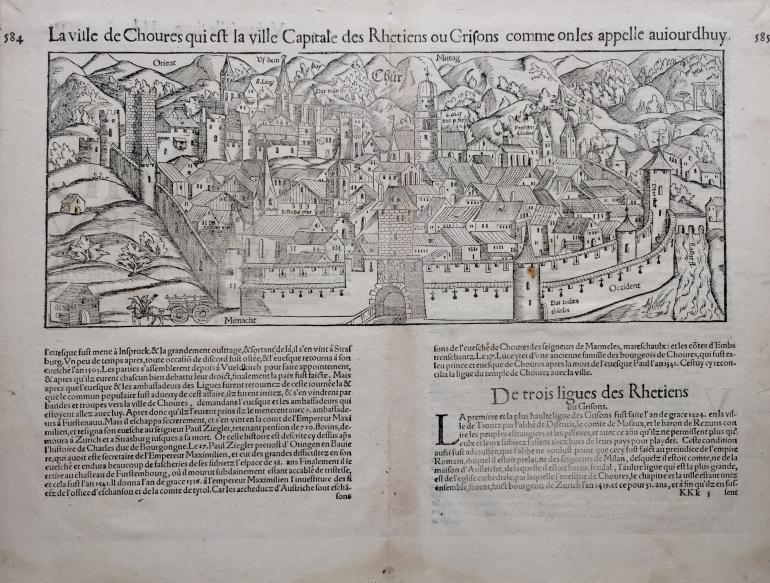 584
La ville de Choures qui est la ville Capitale des Rhetiens ou Grisons comme on les appelle auiourdhuy.
585
Orient
Mittag
Chür
Mitnacht
Occident
l'euesque fust mené à Inspruck, & là grandement oultragé, & sortant de là, il s'en vint à Stras
burg. Vn peu de temps apres, toute occasiõ de discord fust ostée, & l'euesque retourna à son
euesché l'an 1505. Les parties s'assemblerent depuis à Vueldkirch pour faire appointement,
& apres qu'ilz eurent chascun bien debatu leur droict, finalement la paix fust faicte. Mais
apres que l'euesque & les ambassadeurs des Ligues furent retournez de ceste iournée là &
que le commun populaire fust aduerty de cest affaire, ilz furent irritez, & s'en vindrent par
bandes et trouppes vers la ville de Choures, demandans l'euesque et les ambassadeurs qui
estoyent allez auec luy. Apres donc qu'ilz l'eurent prins ilz le menerent auec ambassade-
urs à Furstenauu. Mais il eschappa secretement, et s'en vint en la court de l'Empereur Maxi
milien, et resigna son euesché au seigneur Paul Ziegler, retenant pension de 720. florins, de-
moura à Zurich et à Strasburg iusques à sa mort. Or ceste histoire est descrite cy dessus apres
l'histoire de Charles duc de Bourgongne. Le Paul Ziegler preuost d'Oingen en Bauie
re, qui auoit esté secretaire de l'Empereur Maximilien, et eut des grandes difficultez en son
euesché et endura beaucoup de fascheries de ses subietz l'espace de 38. ans Finalement il se
retire au chasteau de Furstembourg, où il mourut subitement estant accablé de tristesse,
et cela fust l'an 1541. Il donna l'an de grace 1516. à l'empereur Maximilien l'inuestiture des fi
efz de l'office d'eschanson et de la comte de tyrol. Car les archeducz d'Austriche sont eschã-
sons
sons de l'euesché de Choures: les seigneurs de Marmeles, mareschaux: et les côtes d'Embs
trenschantz. Le Luce yter d'vne ancienne famille des bourgeois de Choures, qui fust es-
leu prince et euesque de Choures apres la mort de l'euesque Paul l'an 1541. Cestuy cy recon-
cilia la ligue du temple de Choures auec la ville.
De trois ligues des Rhetiens
ou Grisons.
LA premiere et la plus haulte ligue des Grisons fust faite l'an de grace 1424. en la vil
le de Trontz par l'abbé de Disentis, le comte de Masaux, et le baron de Rezuns con
tre les peuples estrangers et les pilleurs, et aussi ce afin qu'ilz ne permissent plus qu'
eulx et leurs subietz fussent tirez hors de leurs pays pour playder. Ceste condition
aussi fust adioustée, que l'abbé ne vouloit point que cecy fust fait au preiudice de l'empire
Romain, duquel il estoit prelat, ne des seigneurs de Milan, desquelz il estoit comte, ne de la
maison d'Austriche, de laquelle il estoit baron feudal, l'autre ligue qui est la plus grande,
est de l'eglise cathedrale, par laquelle l'euesque de Choures, le chapitre et la ville estant vniz
ensemble, furent faictz bourgeois de Zurich l'an 1419. et ce pour 51. ans, et à fin qu'ilz en fus-
KKk 3 sent